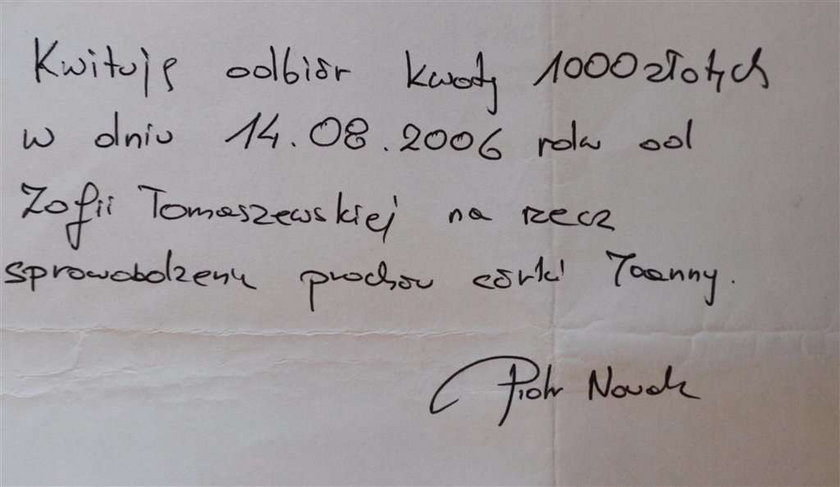 Kwituję odbiór kwoty 1000 złotych
w dniu 14.08.2006 roku od
Zofii Tomaszewskiej na rzecz
sprowadzenia prochów córki Joanny.
Piotr Nowak